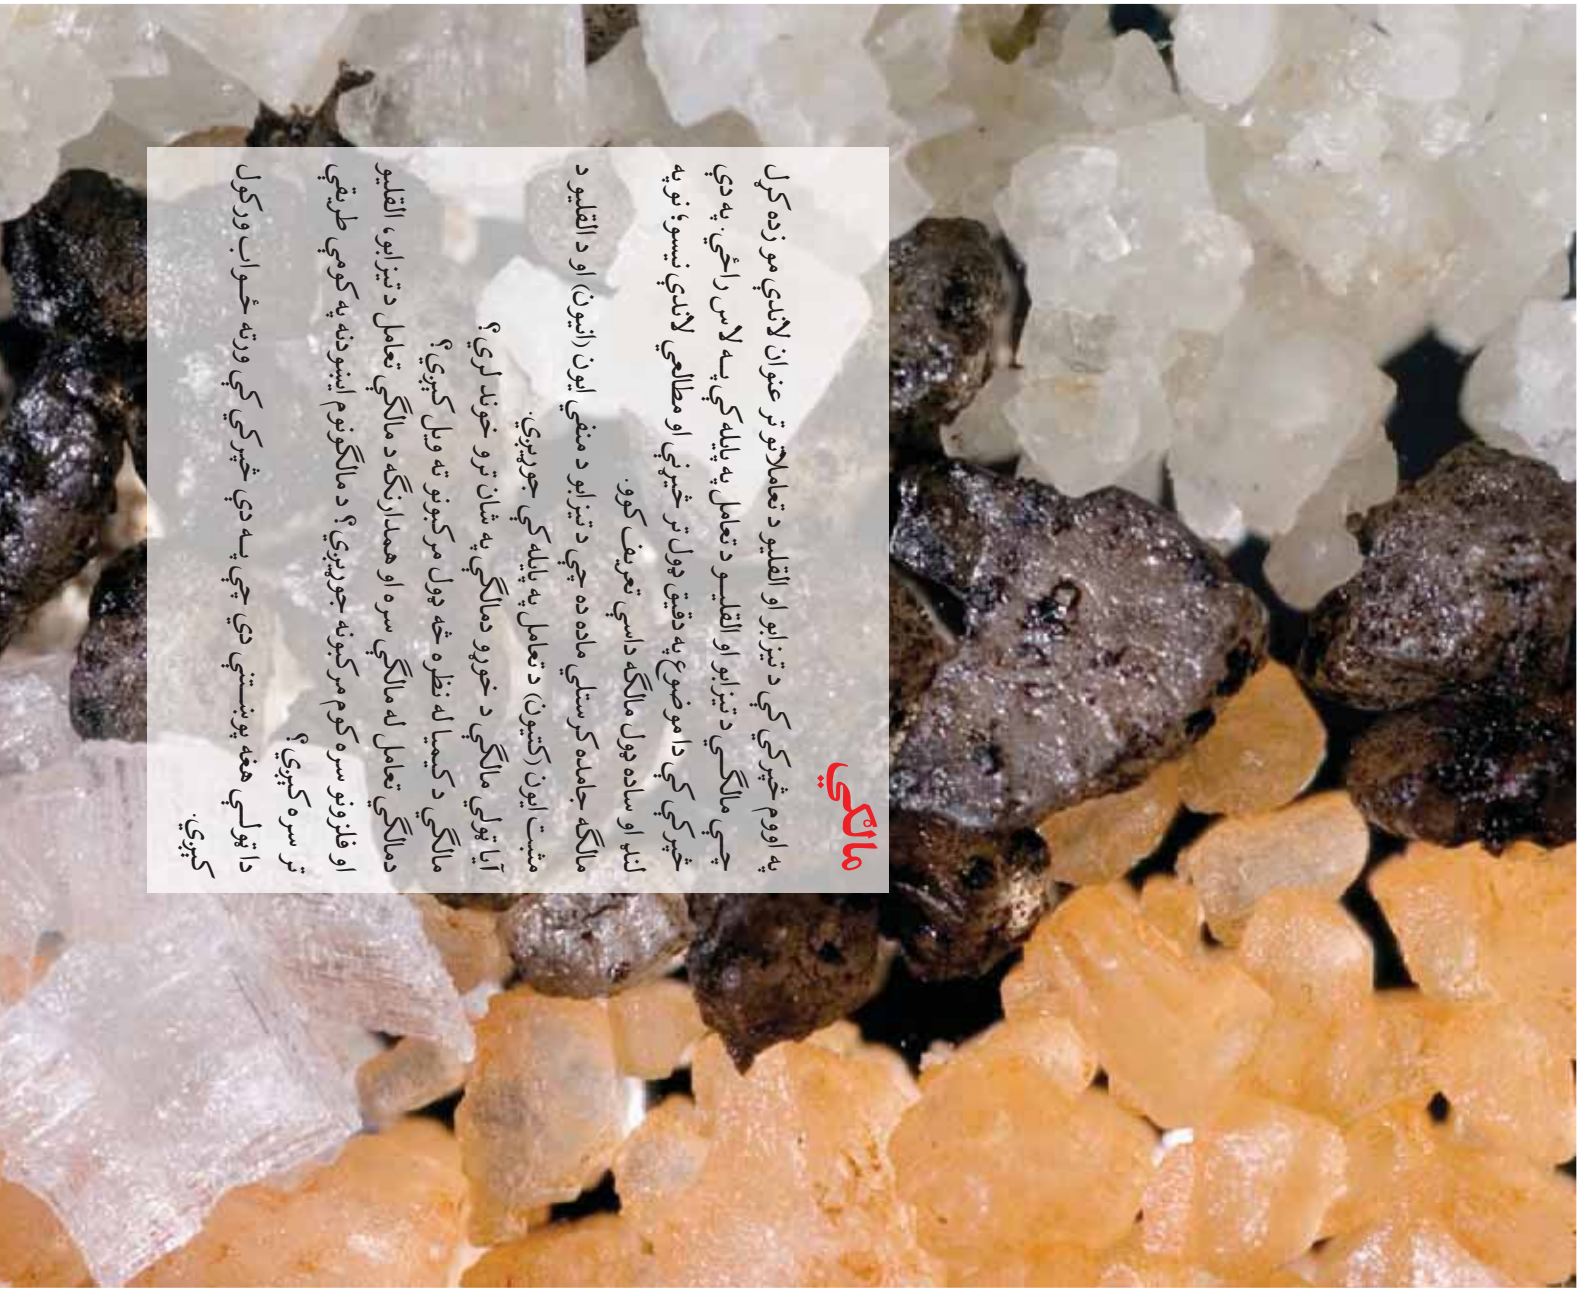 مالګې
په اووم څپرکي کې د تیزابو او القلیو د تعاملاتو تر عنوان لاندې مو زده کړل
چــې مالګــې د تیزابو او القلیــو د تعامل په پایله کې پــه لاس راځي. په دې
څپرکي کې دا موضوع په دقیق ډول تر څېړنې او مطالعې لاندې نیسو؛ نو په
لنډ او ساده ډول مالګه داسې تعریف کوو.
مالګه جامده کرستلي ماده ده چې د تیزابو د منفي ایون (انیون) او د القلیو د
مثبت ایون (کتیون) د تعامل په پایله کې جوړېږي.
آیا ټولې مالګې د خوړو دمالګې په شان ترو خوند لري؟
مالګې د کیمیا له نظره څه ډول مرکبونو ته ویل کېږي؟
دمالګې تعامل له مالګې سره او همدارنګه د مالګې تعامل د تیزابو، القلیو
او فلزونو سره کوم مرکبونه جوړېږي؟ د مالګو نوم ایښودنه په کومې طریقې
تر سره کېږي؟
دا ټولــې هغه پوښــتنې دي چې پــه دې څپرکي کې ورته ځــواب ورکول
کېږي.